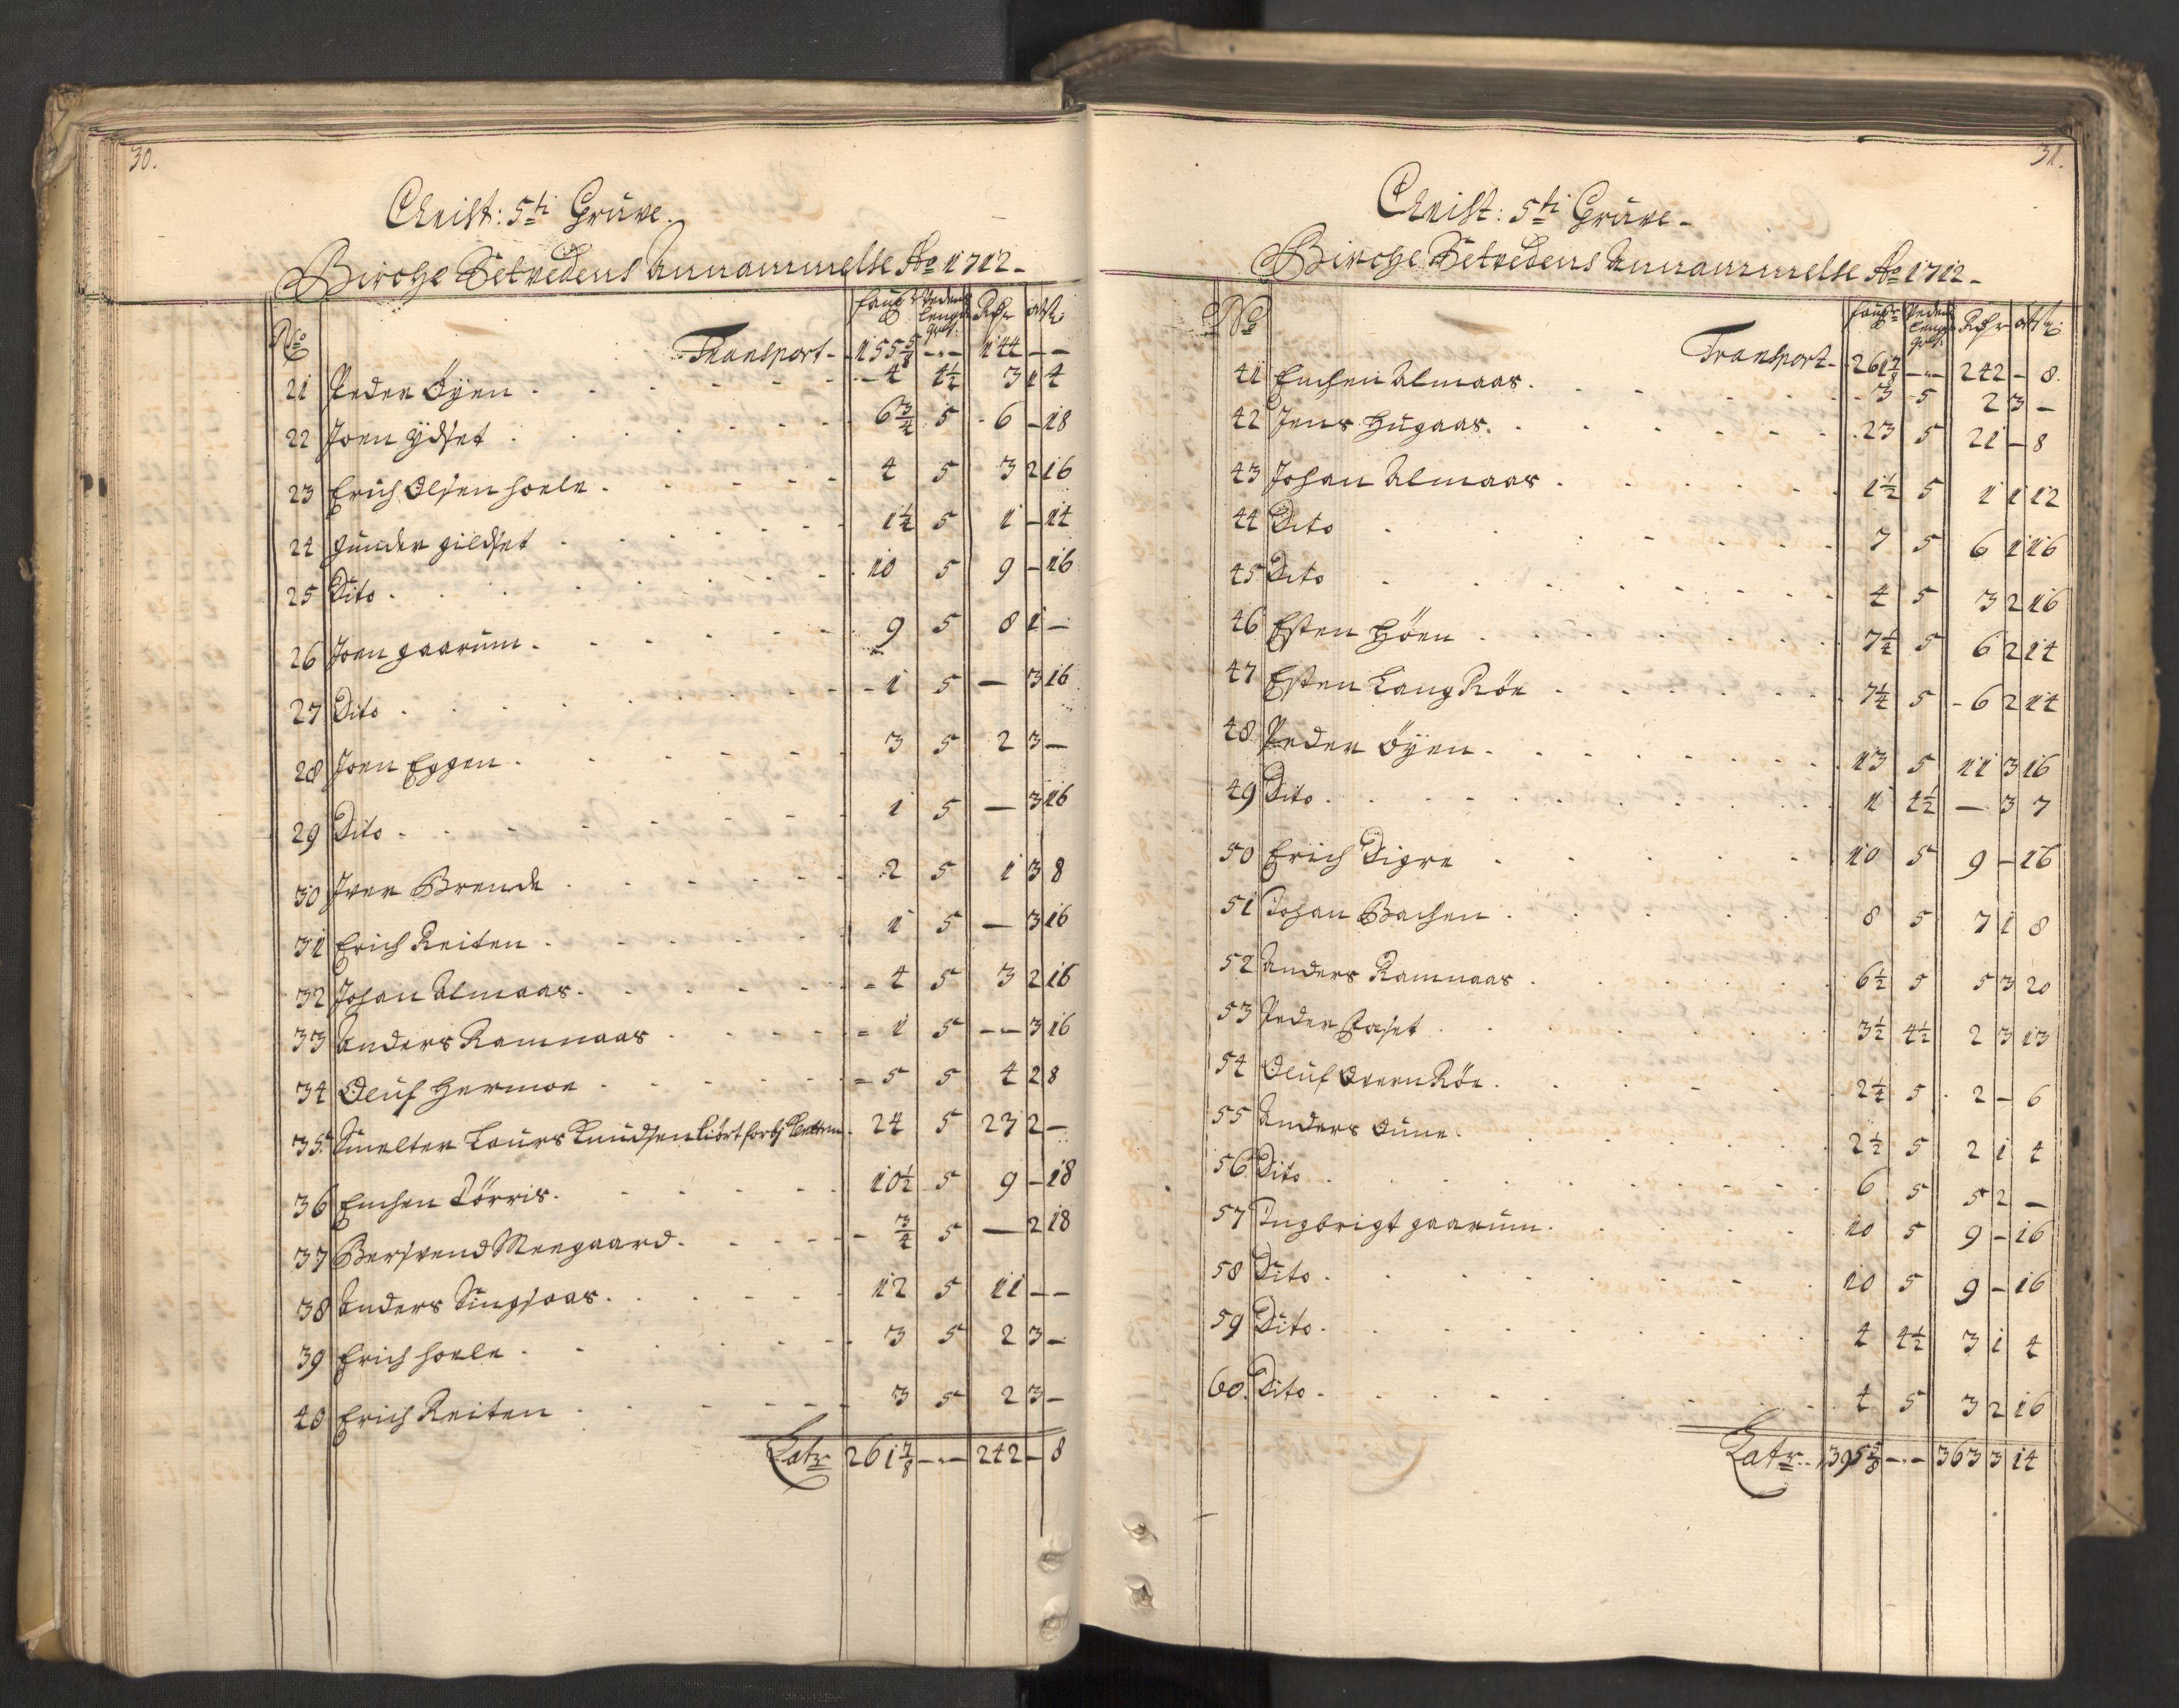 30.
Christ: 5ti Grüve.
Birche Setvedens Annammelse Ao 1712.
No Transport 155 5/8 -.- 144 - -
21 Peder Öyen 4 4½ 3 1 4
22 Joen Ydset 6¾ 5 6 - 18
23 Erich Olsen Hoele 4 5 3 2 16
24 Gunder Gildset 1¼ 5 1 - 14
25 Dito 10 5 9 - 16
26 Joen Gaarum 9 5 8 1 -
27 Dito 1 5 - 3 16
28 Joen Eggen 3 5 2 3 -
29 Dito 1 5 - 3 16
30 Iver Brende 2 5 1 3 8
31 Erich Reiten 1 5 - 3 16
32 Johan Almaas 4 5 3 2 16
33 Anders Ramnaas 1 5 - 3 16
34 Oluf Hermoe 5 5 4 2 8
35 Smelter Laurs Knudsen 24 5 23 2 -
36 Enchen Törris 10½ 5 9 - 18
37 Bersvend Meegaard ¾ 5 - 2 18
38 Anders Singsaas 12 5 11 - -
39 Erich Hoele 3 5 2 3 -
40 Erich Reiten 3 5 2 3 -
Latr 261 7/8 -.- 242 - 8
31.
Christ: 5ti Grüve.
Birche Setvedens Annammelse Ao 1712.
No Transport 261 7/8 -.- 242 - 8.
41 Enchen Almaas 3 5 2 3 -
42 Jens Hugaas 23 5 21 - 8
43 Johan Almaas 1½ 5 1 1 12
44 Dito 7 5 6 1 16
45 Dito 4 5 3 2 16
46 Esten Höen 7¼ 5 6 2 14
47 Esten Lang Röe 7¼ 5 6 2 14
48 Peder Öyen 13 5 11 3 16
49 Dito 1 4½ - 3 7
50 Erich Digre 10 5 9 - 16
51 Johan Bachen 8 5 7 1 8
52 Anders Ramnaas 6½ 5 5 3 20
53 Peder Faset 3½ 4½ 2 3 13
54 Oluf Overn Röe 2¼ 5 2 - 6
55 Anders Aune 2½ 5 2 1 4
56 Dito 6 5 5 2 -
57 Ingbrigt Gaarum 10 5 9 - 16
58 Dito 10 5 9 - 16
59 Dito 4 4½ 3 1 4
60. Dito 4 5 3 2 16
Latr 395 5/8 -.- 363 3 14